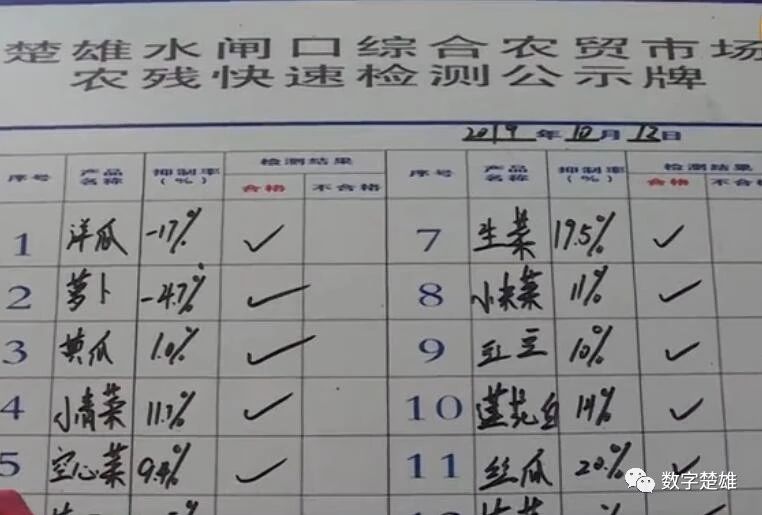 楚雄水闸口综合农贸市场
农残快速检测公示牌
2019 年 10 月 12 日
序号 产品名称 抑制率(%) 检测结果 合格 不合格 序号 产品名称 抑制率(%) 检测结果 合格 不合格
1 洋瓜 -17% ✓ 7 生菜 19.5% ✓
2 萝卜 -4.7% ✓ 8 小夹菜 11% ✓
3 黄瓜 1.0% ✓ 9 豇豆 10% ✓
4 小青菜 11.7% ✓ 10 14% ✓
5 空心菜 9.4% ✓ 11 丝瓜 20.% ✓
数字楚雄